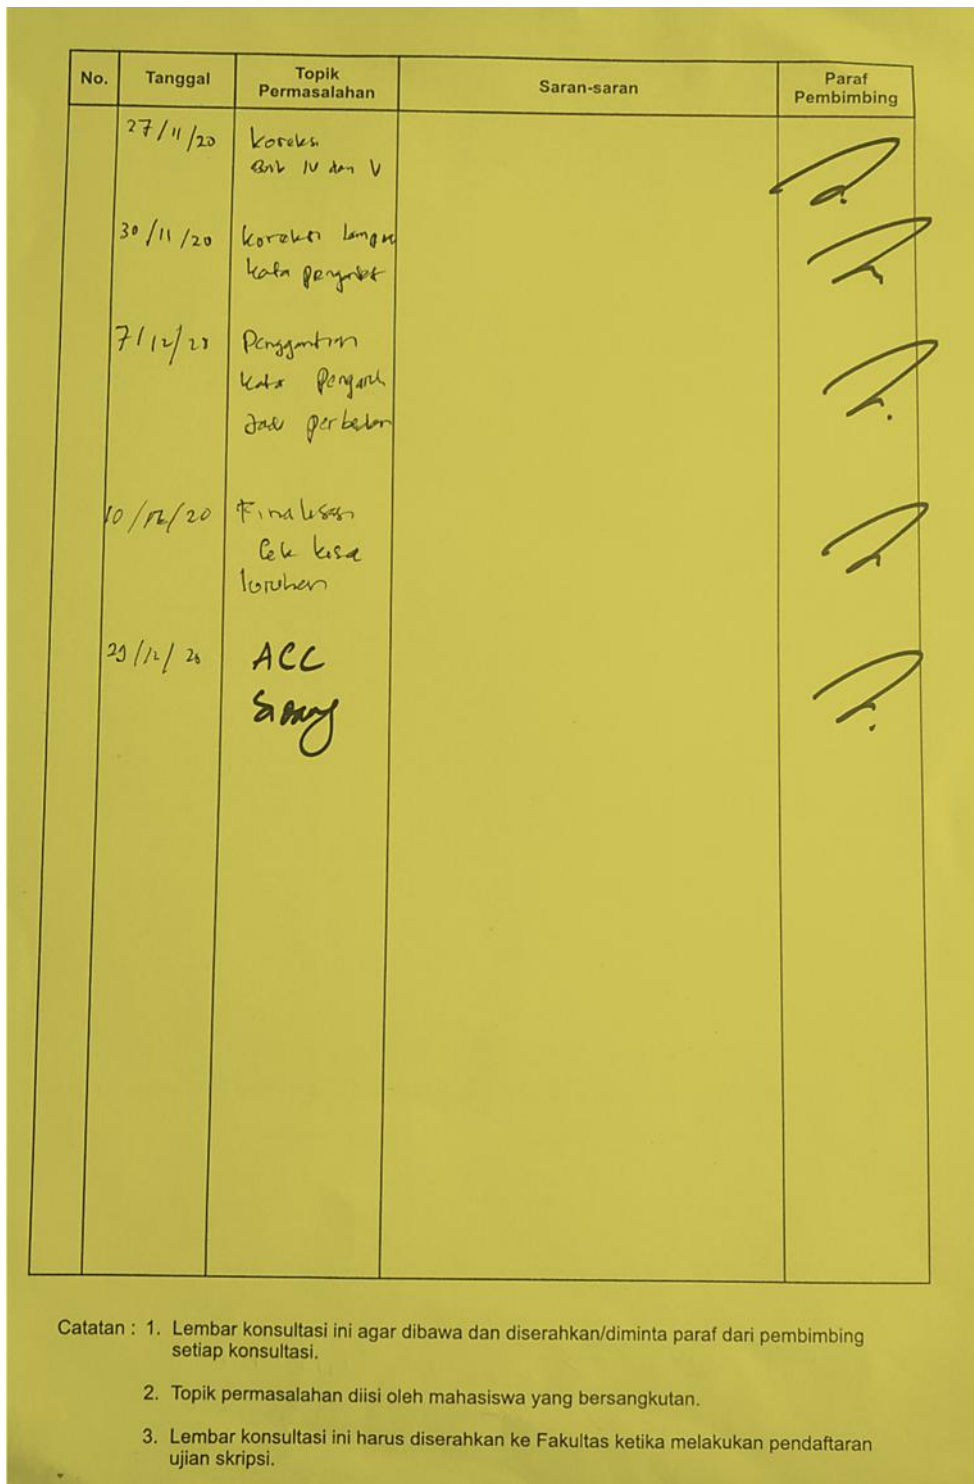 No. Tanggal Topik Permasalahan Saran-saran Paraf Pembimbing
27/11/20 Koreksi
Bab IV dan V
30/11/20 Koreksi
kata
7/12/20 Penggantian
kata
dan
10/12/20 Finalisasi
Cek
29/12/20 ACC
Sidang
Catatan : 1. Lembar konsultasi ini agar dibawa dan diserahkan/diminta paraf dari pembimbing
setiap konsultasi.
2. Topik permasalahan diisi oleh mahasiswa yang bersangkutan.
3. Lembar konsultasi ini harus diserahkan ke Fakultas ketika melakukan pendaftaran
ujian skripsi.